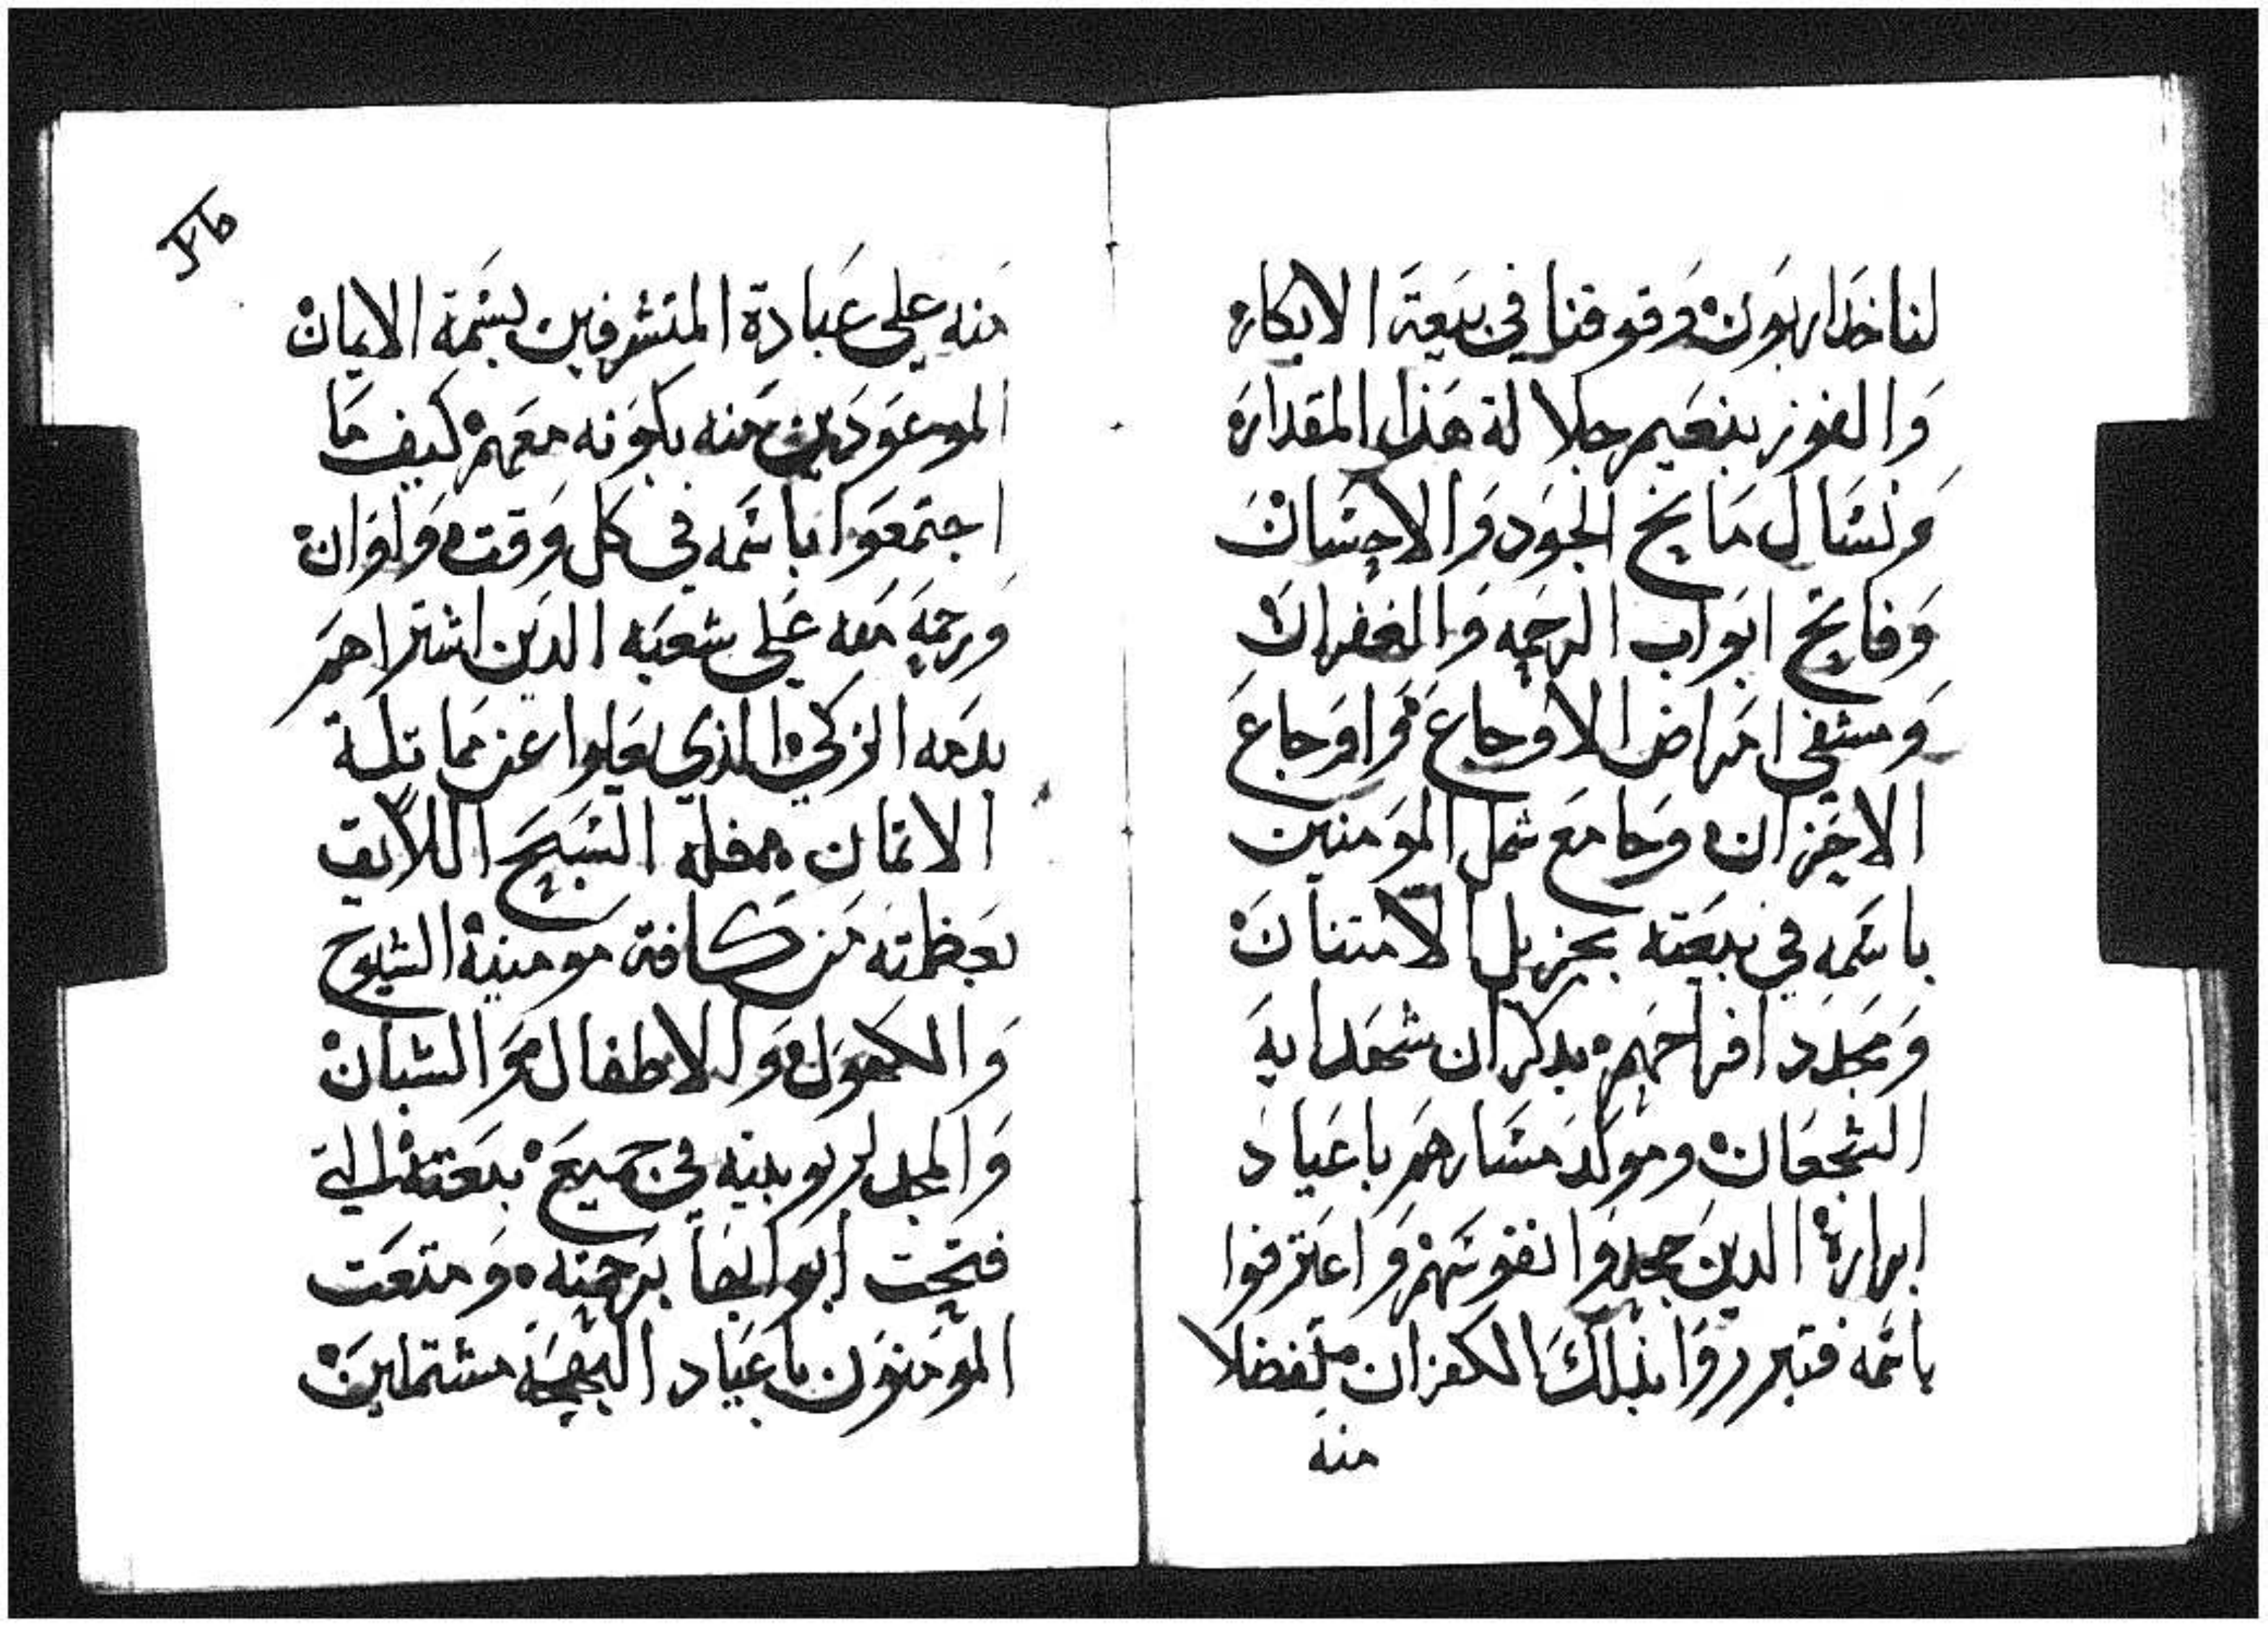 لنا خدا ربوت وقوفنا في بيعة الابكار
والفوز بنعيم جلالة هذا المقدار
ونسال مانح الجود والاحسان
وفاتح ابواب الرحمه والغفران
ومشفي امراض الاوجاع واوجاع
الاحزان وجامع شمل المومنين
باسمه في بيعته بجزيل الامتنان
ومجدد افراحهم بدكران شهدايه
الشجعان وموكد مسارهم باعياد
ابراره الدين جحدوا نفوسهم واعترفوا
باسمه فتبرروا بذلك الكفران متفضلا
منه
منه على عبادة المتشرفين بسمة الايمان
الموعودين منه بكونه معهم كيف ما
اجتمعوا باسمه في كل وقت واوان
ورحمة منه على شعبه الدين اشتراهم
بدمه الزكي الذي يعلوا عن مماتلة
الاتمان فله التسبيح اللايق
بعظمته من كافة مومنية الشيوخ
والكهول والاطفال والشبان
والمجد لربوبيته في جميع بيعته التي
فتحت ابوابها برحمته ومتعت
المومنون باعياد البهجة مشتملين